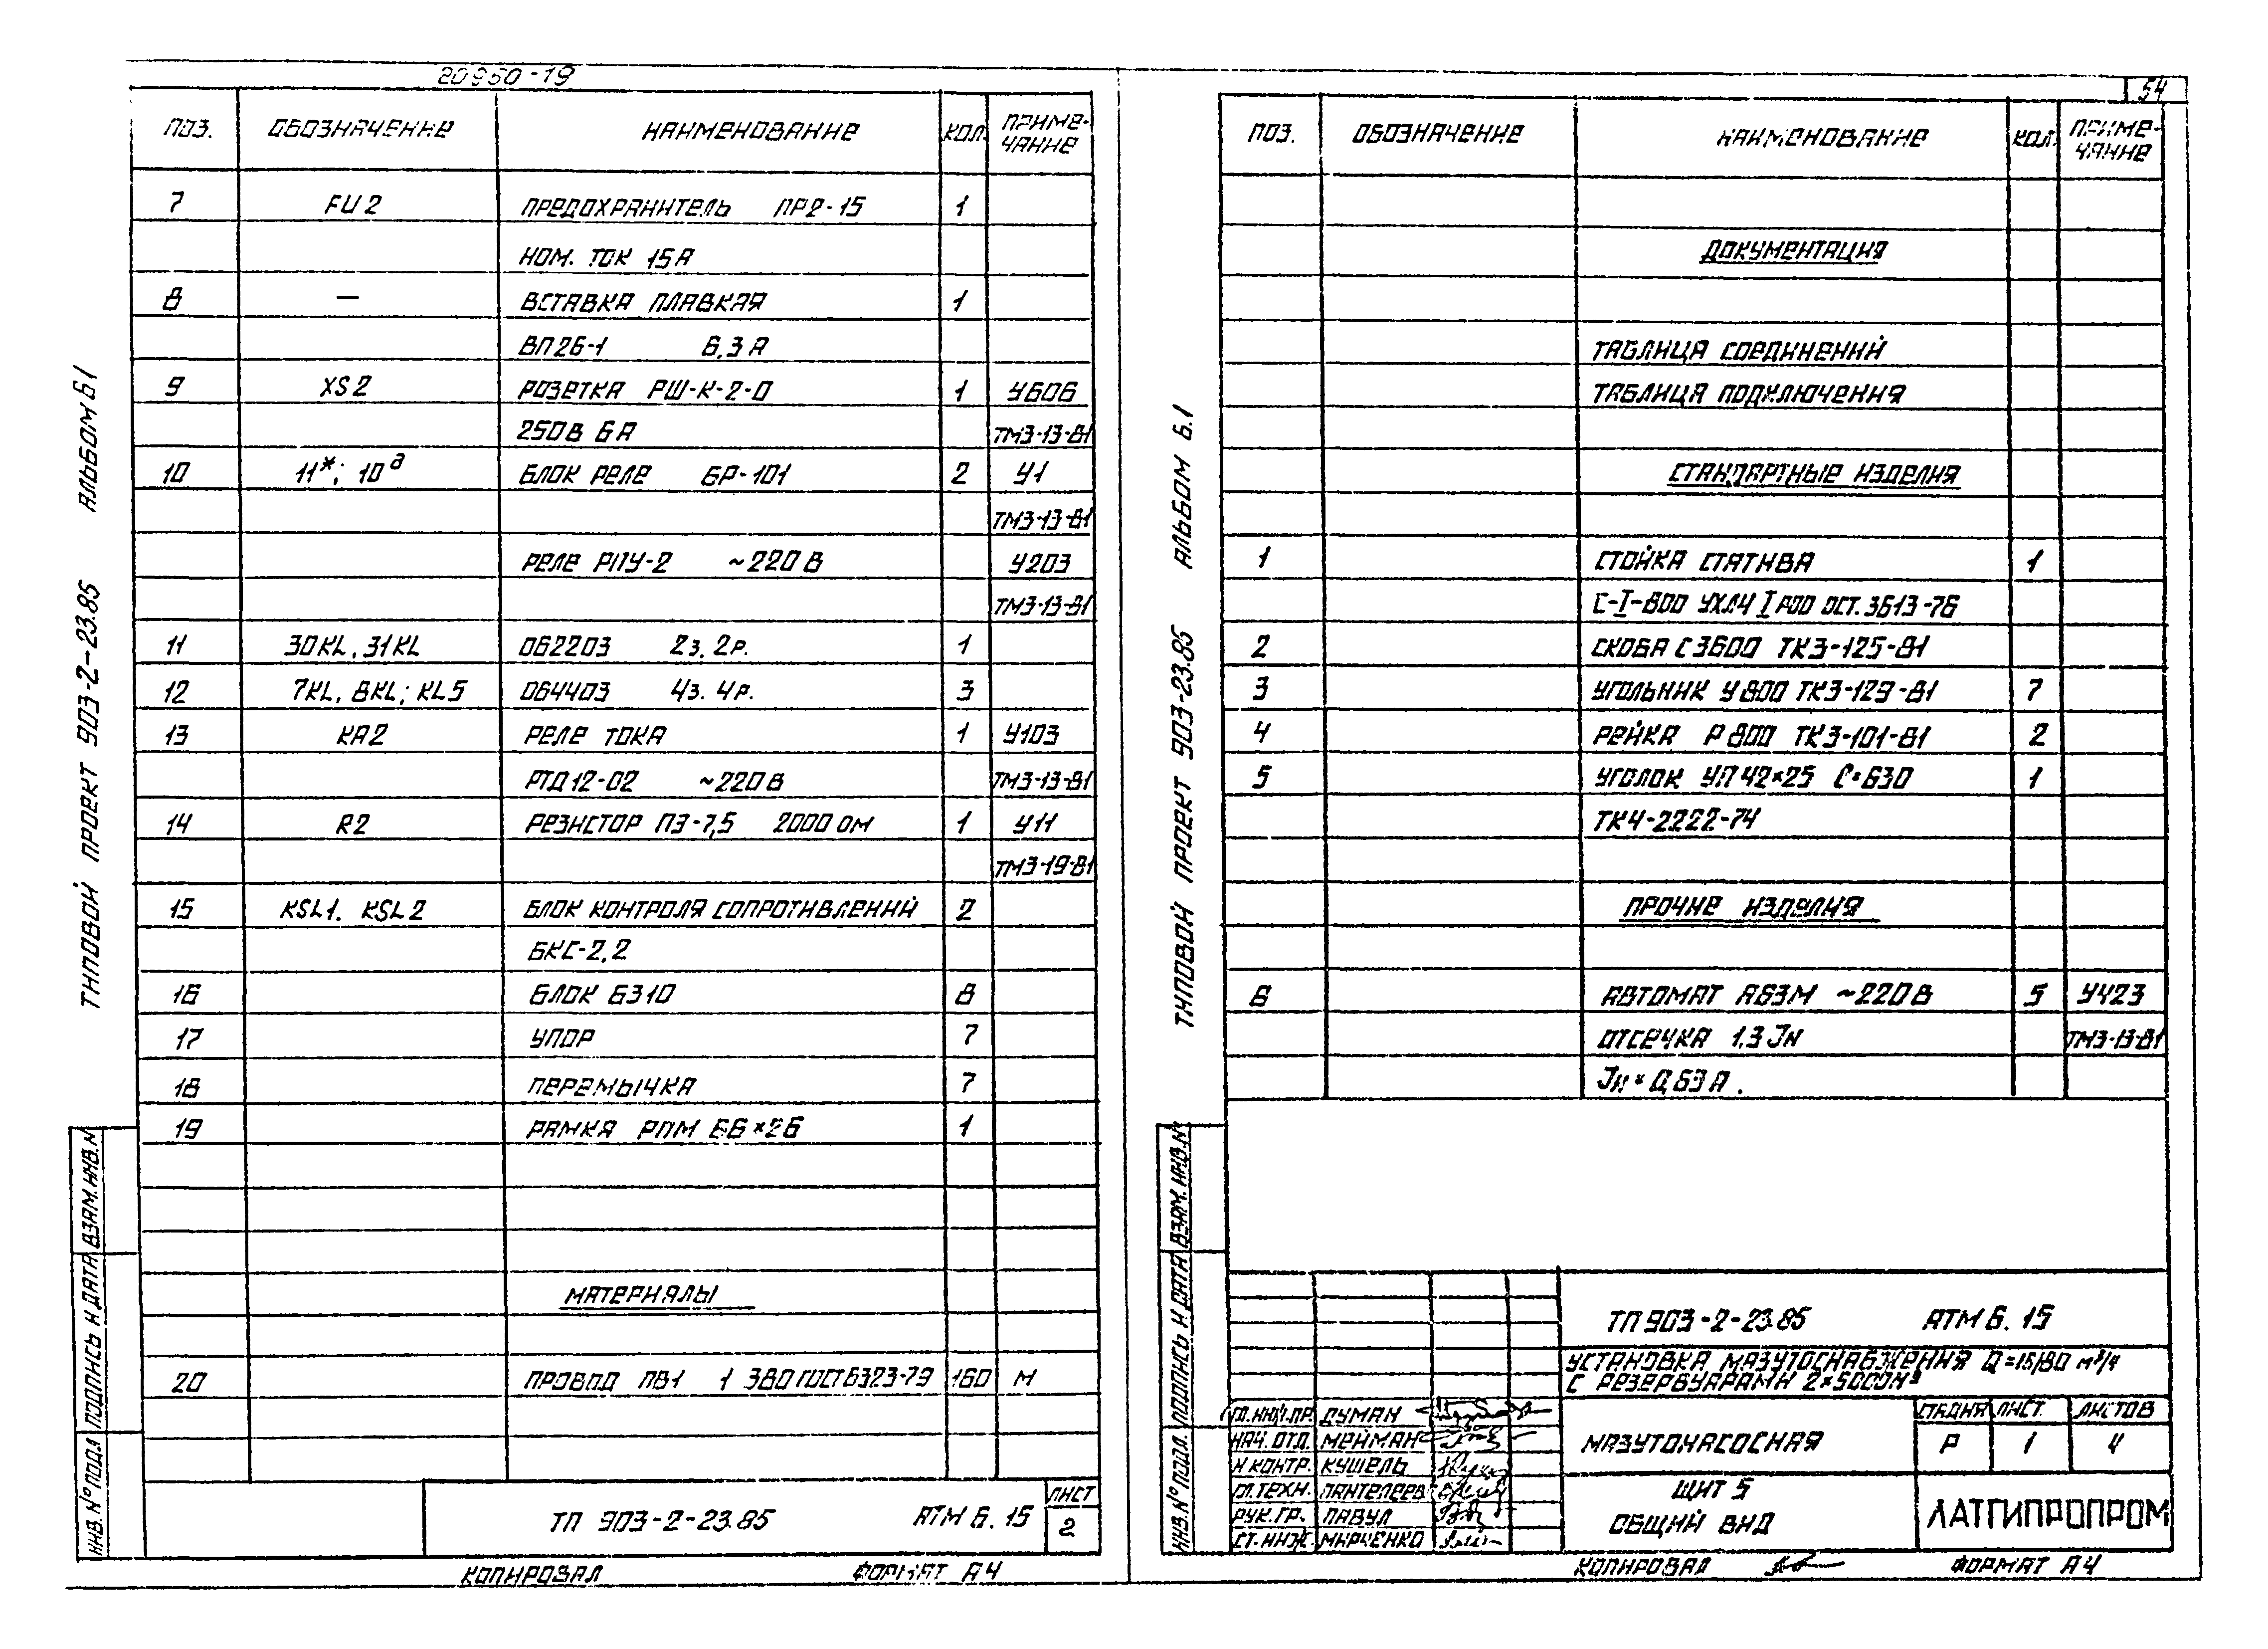 20950-19
54
ПОЗ. ОБОЗНАЧЕНИЕ НАИМЕНОВАНИЕ КОЛ. ПРИМЕ-
ЧАНИЕ
7 FU2 ПРЕДОХРАНИТЕЛЬ ПР2-15 1
НОМ. ТОК 15А
8 — ВСТАВКА ПЛАВКАЯ 1
ВП2Б-1 6,3А
9 XS2 РОЗЕТКА РШ-К-2-0 1 У606
250В 6А ТМ3-13-81
10 11*; 10д БЛОК РЕЛЕ БР-101 2 У1
ТМ3-13-81
РЕЛЕ РПУ-2 ~220В У203
ТМ3-13-81
11 30KL, 31KL 062203 2з. 2р. 1
12 7KL, 8KL; KL5 064403 4з. 4р. 3
13 КА2 РЕЛЕ ТОКА 1 У103
РТД12-02 ~220В ТМ3-13-81
14 R2 РЕЗИСТОР ПЭ-7,5 2000 ОМ 1 У11
ТМ3-19-81
15 KSL1. KSL2 БЛОК КОНТРОЛЯ СОПРОТИВЛЕНИЙ 2
БКС-2,2
16 БЛОК БЗ10 8
17 УПОР 7
18 ПЕРЕМЫЧКА 7
19 РАМКА РПМ 66×26 1
МАТЕРИАЛЫ
20 ПРОВОД ПВ1 1 380 ГОСТ 6323-79 160 М
ТП 903-2-23.85 АТМ 6.15 ЛИСТ
2
КОПИРОВАЛ ФОРМАТ А4
ТИПОВОЙ ПРОЕКТ 903-2-23.85 АЛЬБОМ 6.1
ИНВ. № ПОДЛ ПОДПИСЬ И ДАТА ВЗАМ. ИНВ. №
ПОЗ. ОБОЗНАЧЕНИЕ НАИМЕНОВАНИЕ КОЛ. ПРИМЕ-
ЧАНИЕ
ДОКУМЕНТАЦИЯ
ТАБЛИЦА СОЕДИНЕНИЙ
ТАБЛИЦА ПОДКЛЮЧЕНИЯ
СТАНДАРТНЫЕ ИЗДЕЛИЯ
1 СТОЙКА СТАТИВА 1
С-I-800 УХЛ4 IР00 ОСТ.36.13-76
2 СКОБА С3600 ТК3-125-81
3 УГОЛЬНИК У800 ТК3-129-81 7
4 РЕЙКА Р800 ТК3-101-81 2
5 УГОЛОК УП42×25 ℓ=630 1
ТК4-2222-74
ПРОЧИЕ ИЗДЕЛИЯ
6 АВТОМАТ А63М ~220В 5 У423
ОТСЕЧКА 1,3 Jн ТМ3-13-81
Jн=0,63А.
ТП 903-2-23.85 АТМ 6.15
УСТАНОВКА МАЗУТОСНАБЖЕНИЯ Q=15/80 м³/ч
С РЕЗЕРВУАРАМИ 2×500м³
ГЛ. ИНЖ. ПР. ДУМАН
НАЧ. ОТД. МЕЙМАН
Н КОНТР. КУШЕЛЬ
ГЛ. ТЕХН. ПАНТЕЛЕЕВ
РУК. ГР. ПАВУЛ
СТ. ИНЖ. МАРЧЕНКО
МАЗУТОНАСОСНАЯ
СТАДИЯ ЛИСТ ЛИСТОВ
Р 1 4
ЩИТ 5
ОБЩИЙ ВИД
ЛАТГИПРОПРОМ
КОПИРОВАЛ ФОРМАТ А4
ТИПОВОЙ ПРОЕКТ 903-2-23.85 АЛЬБОМ 6.1
ИНВ. № ПОДЛ. ПОДПИСЬ И ДАТА ВЗАМ. ИНВ. №